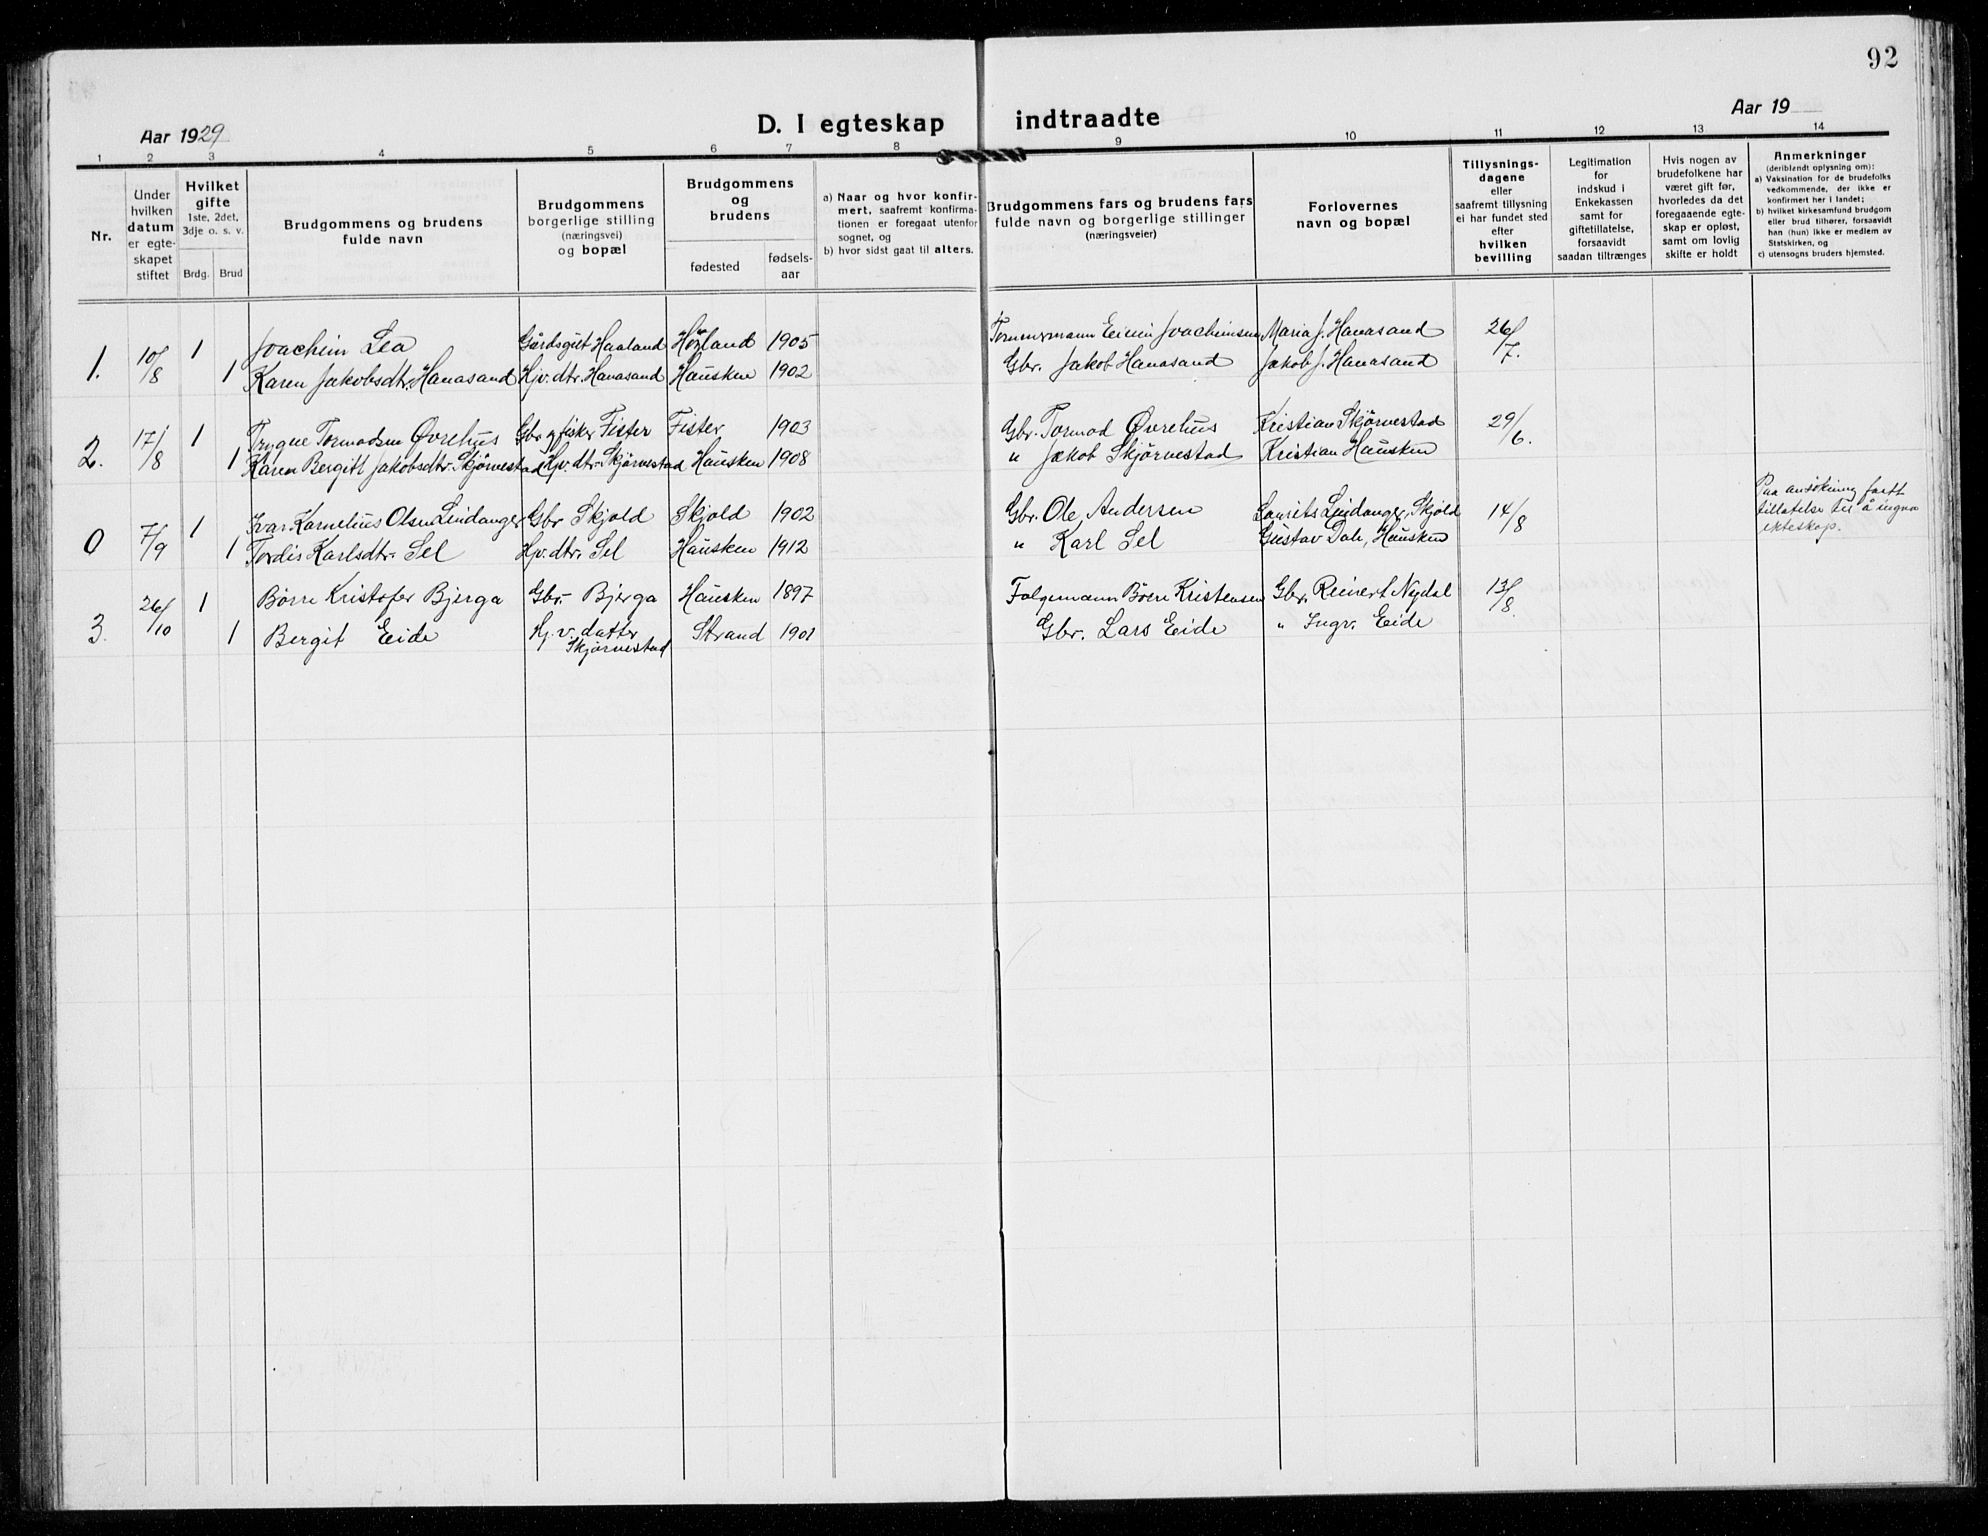 92
Aar 1929
D. I egteskap indtraadte
Aar 19
1 2 3 4 5 6 7 8 9 10 11 12 13 14
Nr.
Under
hvilken
datum
er egte-
skapet
stiftet
Hvilket
gifte
1ste, 2det,
3dje o. s. v.
Brdg.
Brud
Brudgommens og brudens
fulde navn
Brudgommens
borgerlige stilling
(næringsvei)
og bopæl
Brudgommens
og
brudens
fødested
fødsels-
aar
a) Naar og hvor konfir-
mert, saafremt konfirma-
tionen er foregaat utenfor
sognet, og
b) hvor sidst gaat til alters.
Brudgommens fars og brudens fars
fulde navn og borgerlige stillinger
(næringsveier)
Forlovernes
navn og bopæl
Tillysnings-
dagene
eller
saafremt tillysning
ei har fundet sted
efter
hvilken
bevilling
Legitimation
for
indskud i
Enkekassen
samt for
giftetillatelse,
forsaavidt
saadan tiltrænges
Hvis nogen av
brudefolkene har
været gift før,
hvorledes da det
foregaaende egte-
skap er opløst,
samt om lovlig
skifte er holdt
Anmerkninger
(deriblandt oplysning om):
a) Vaksination for de brudefolks
vedkommende, der ikke er
konfirmert her i landet;
b) hvilket kirkesamfund brudgom
eller brud tilhører, forsaavidt
han (hun) ikke er medlem av
Statskirken, og
c) utensogns bruders hjemsted.
1. 10/8 1 Joachim Lea Gårdsgut Haaland Høland 1905 Joachimsen Maria J. Hanasand 26/7.
1 Karen Jakobsdtr. Hanasand Hjv. dtr. Hanasand Hausken 1902 Gbr. Jakob Hanasand Jakob J. Hanasand
2. 17/8 1 Trygve Tormodsen Øvrehus Gbr og fisker Fister Fister 1903 Gbr. Tormod Øvrehus Kristian Skjørvestad 29/6.
1 Karen Bergitt Jakobsdtr. Skjørvestad Hjv. dtr. Skjørvestad Hausken 1908 " Jakob Skjørvestad Kristian Hausken
0 7/9 1 Ivar Kornelius Olsen Lindanger Gbr Skjold Skjold 1902 Gbr. Ole Andersen Laurits Lindanger, Skjold 14/8 Paa ansökning faatt
tillatelse til å ingaa
ekteskap.
1 Tordis Karlsdtr. Sel Hjv. dtr. Sel Hausken 1912 " Karl Sel Gustav Dale, Hausken
3. 26/10 1 Børre Kristofer Bjerga Gbr. Bjerga Hausken 1897 Folgemann Børre Kristensen Gbr. Reinert Nydal 13/8.
1 Bergit Eide Hj. v. datter Strand 1901 Gbr. Lars Eide " Ingv. Eide
Skjørvestad